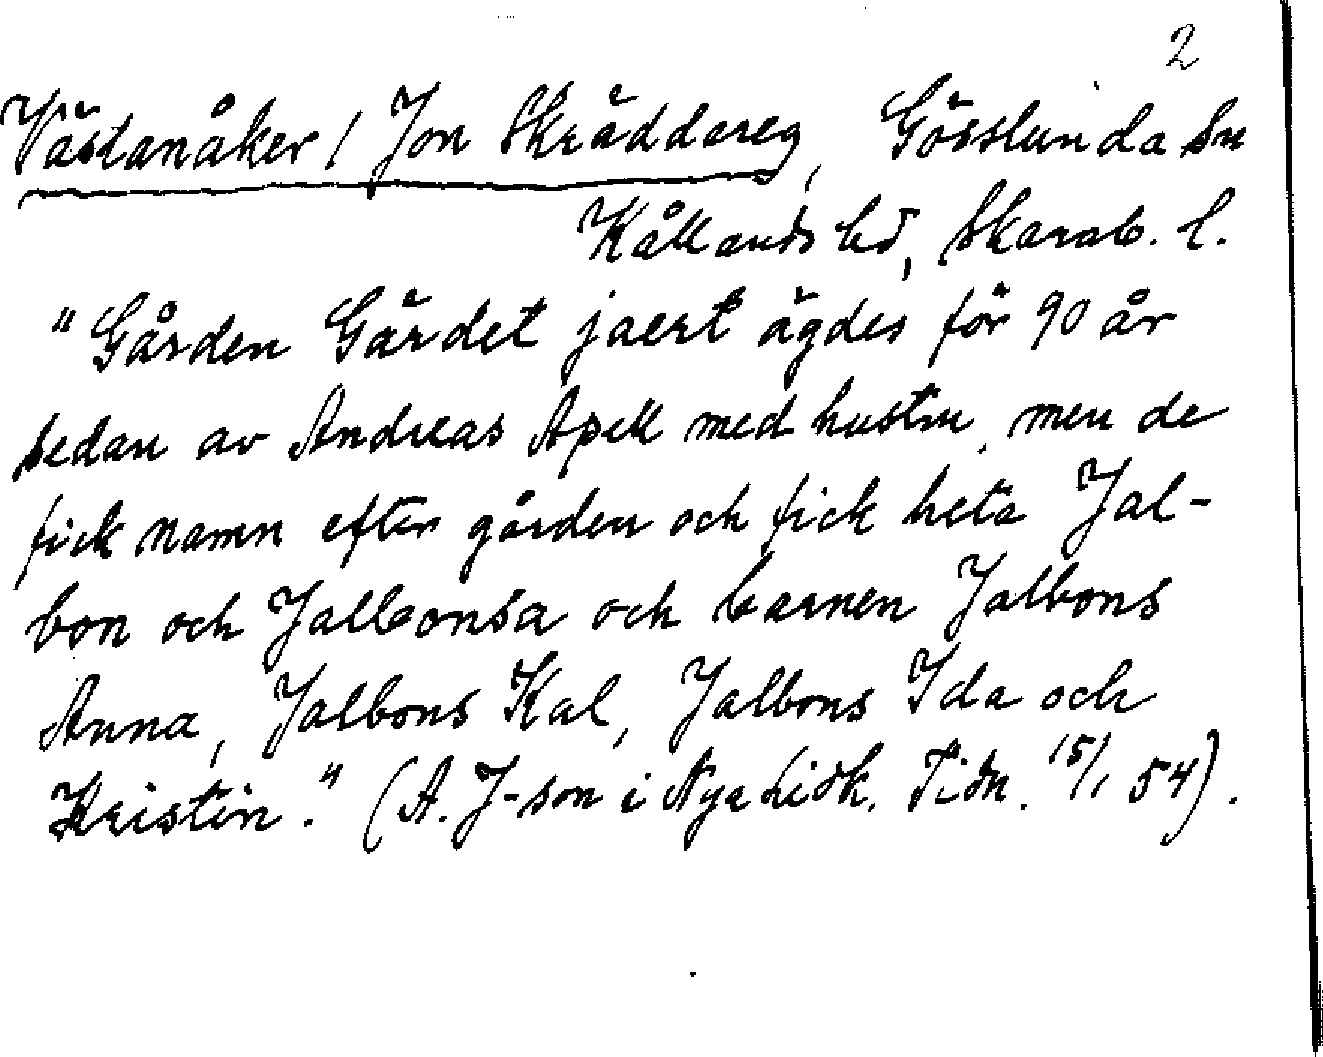 2
Västanåker 1 Jon Skräddareg, Gösslunda sn
Kållands hd, Skarab. l.
"Gården Gärdet jaert ägdes för 90 år
sedan av Andreas Apell med hustru, men de
fick namn efter gården och fick heta Jal-
bon och Jalbonsa och barnen Jalbons
Anna, Jalbons Kal, Jalbons Ida och
Kristin." (A. J-son i Nya Lidk. Tidn. 15/1 54).